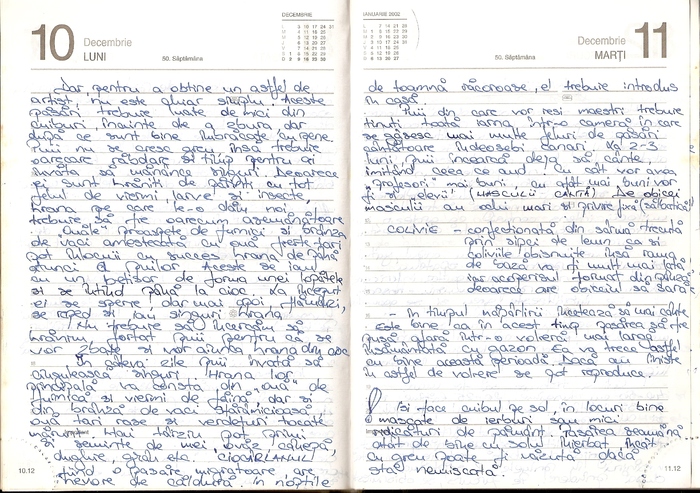 10
Decembrie
LUNI
50. Săptămâna
DECEMBRIE
Dar, pentru a obține un astfel de
artist, nu este chiar simplu. Aceste
păsări trebuie luate de mici din
cuiburi, înainte de a zbura, dar
după ce sunt bine îmbrăcate cu pene.
Puii nu se cresc greu, însă trebuie
oarecare răbdare și timp pentru a-i
învăța să mănânce singuri. Deoarece
ei sunt hrăniți de părinți cu tot
felul de viermi, larve și insecte
hrana pe care le-o dăm noi
trebuie să fie oarecum asemănătoare.
"Ouăle" proaspete de furnici și brânza
de vaci amestecată cu ouă fierte tari
pot înlocui cu succes hrana de până
atunci a puilor. Aceste se iau
cu un bețișor de forma unei lopățele
și se întind până la cioc. La început
ei se sperie, dar mai apoi, flămânzi,
se reped și iau singuri hrana.
Nu trebuie să încercăm să
hrănim forțat puii pentru că se
vor zbate și vor arunca hrana din cioc
În câteva zile puii învață să
ciugulească singuri. Hrana lor
principală va consta din "ouă" de
furnică și viermi de făină, dar și
din brânză de vaci sfărâmicioasă,
ouă tari rase și verdețuri tocate
mărunt. Mai târziu pot primi
și semințe de mei, orez, cânepă,
dughie, grâu etc. CIOCÎRLANUL
fiind o pasăre migratoare are
nevoie de căldură. În nopțile
10.12
IANUARIE 2002
50. Săptămâna
Decembrie
MARȚI
11
de toamnă răcoroase, el trebuie introdus
în casă.
Puii din care vor ieși maeștri trebuie
ținuți toată iarna într-o cameră în care
se găsesc mai multe feluri de păsări
cântătoare îndeosebi canari. La 2-3
luni, puii încearcă deja să cânte,
imitând ceea ce aud. Cu cât vor avea
"profesori" mai buni cu atât mai buni vor
fi și elevii! (MASCULII CÂNTĂ) De obicei
masculii au ochii mari și privire fixă (sălbatică)
COLIVIE - confecționată din sârmă trecută
prin șipci de lemn ca și
coliviile obișnuite însă rama
de bază va fi mult mai lată,
iar acoperișul format din pânză
deoarece are obiceiul să sară
- În timpul năpârlirii încetează să mai cânte.
Este bine ca în acest timp pasărea să fie
pusă afară într-o volieră mai largă
însămânțată cu gazon. Ea va trece astfel
cu bine această perioadă. Dacă au liniște
în astfel de voliere se pot reproduce.
Își face cuibul pe sol, în locuri bine
mascate de ierburi sau mici
ridicături de pământ. Pasărea seamănă
atât de bine cu solul înierbat, încât
cu greu poate fi văzută dacă
stă nemișcată.
11.12